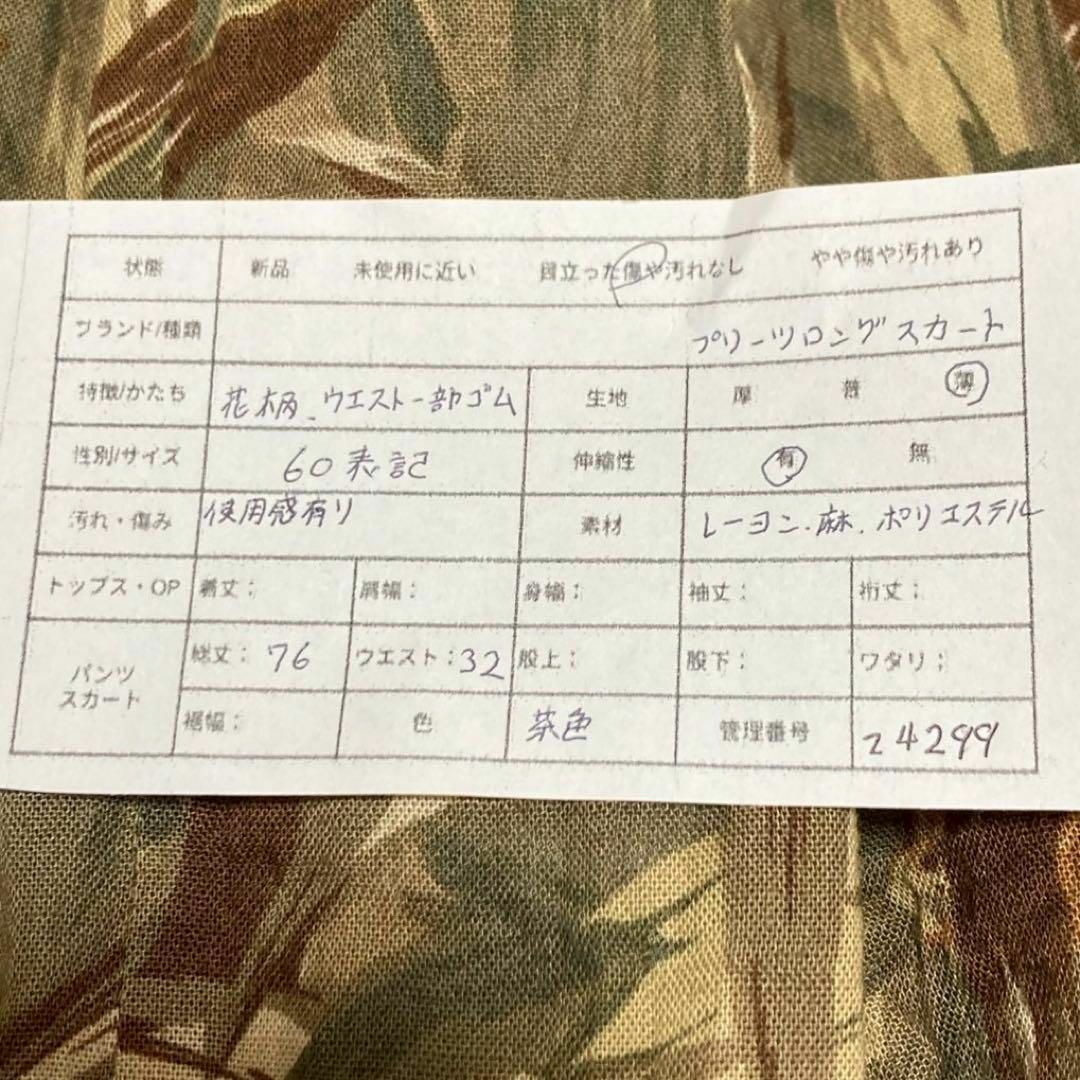 状態 新品 未使用に近い 目立った傷や汚れなし やや傷や汚れあり
ブランド/種類 プリーツロングスカート
特徴/かたち 花柄、ウエスト一部ゴム 生地 厚 普 薄
性別/サイズ 60表記 伸縮性 有 無
汚れ・傷み 使用感有り 素材 レーヨン、麻、ポリエステル
トップス・OP 着丈: 肩幅: 身幅: 袖丈: 裄丈:
パンツ
スカート
総丈: 76 ウエスト: 32 股上: 股下: ワタリ:
裾幅: 色 茶色 管理番号 24299